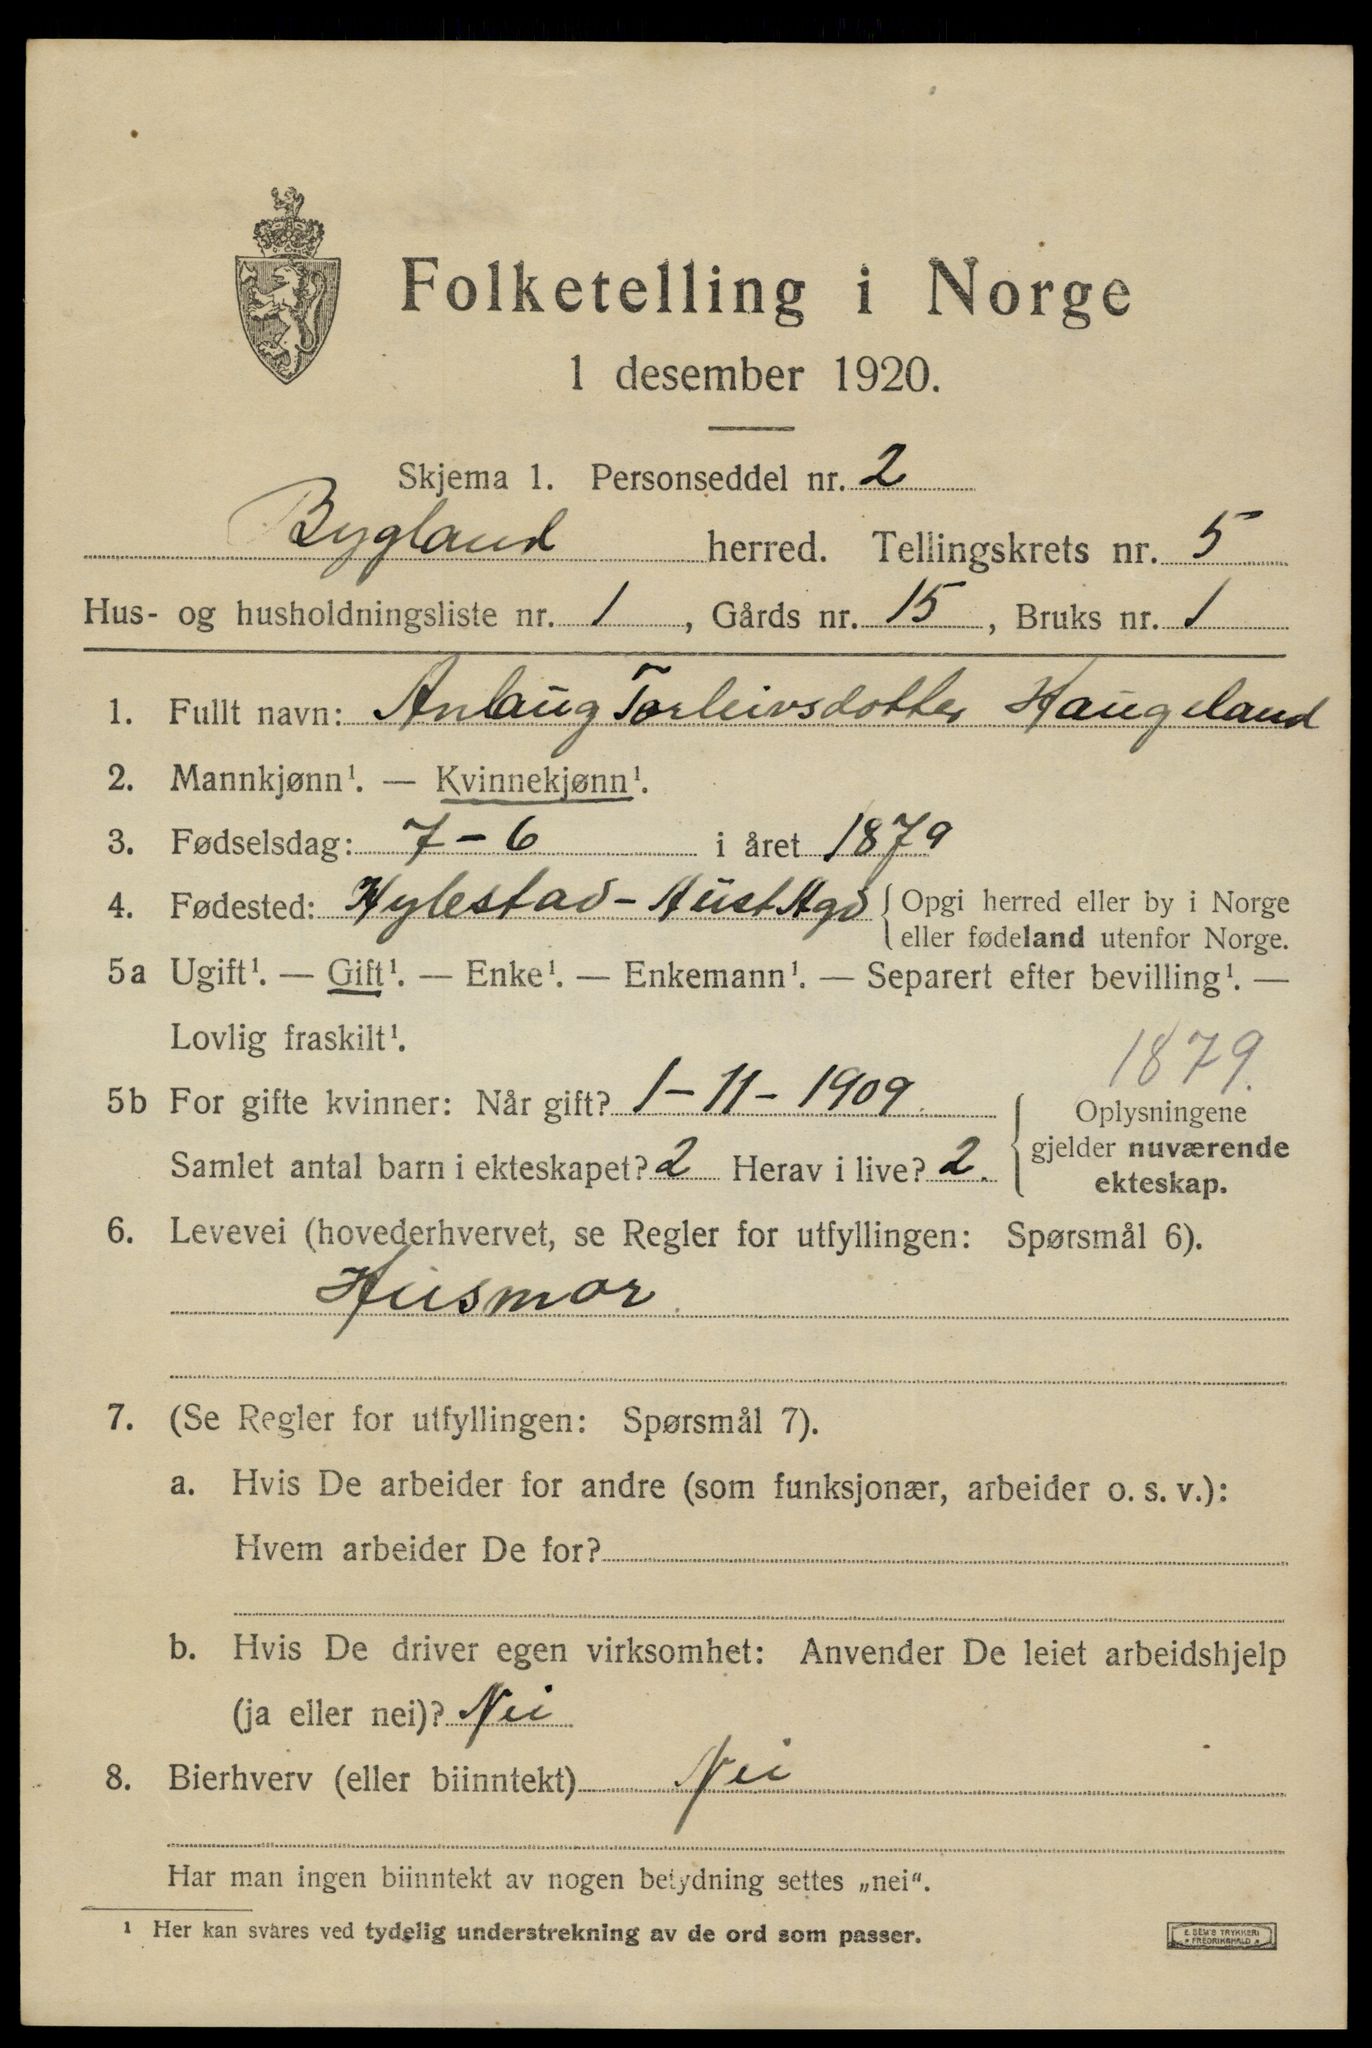 Folketelling i Norge
1 desember 1920.
Skjema 1. Personseddel nr. 2
Bygland herred. Tellingskrets nr. 5
Hus- og husholdningsliste nr. 1, Gårds nr. 15, Bruks nr. 1
1. Fullt navn: Anlaug Torleivsdotter Haugeland
2. Mannkjønn¹. — Kvinnekjønn¹.
3. Fødselsdag: 7-6 i året 1879
4. Fødested: Hylestad - Aust Agd { Opgi herred eller by i Norge
eller fødeland utenfor Norge.
5a Ugift¹. — Gift¹. — Enke¹. — Enkemann¹. — Separert efter bevilling¹. —
Lovlig fraskilt¹.
1879.
5b For gifte kvinner: Når gift? 1-11-1909.
Samlet antal barn i ekteskapet? 2 Herav i live? 2.
Oplysningene
gjelder nuværende
ekteskap.
6. Levevei (hovederhvervet, se Regler for utfyllingen: Spørsmål 6).
Husmor.
7. (Se Regler for utfyllingen: Spørsmål 7).
a. Hvis De arbeider for andre (som funksjonær, arbeider o. s. v.):
Hvem arbeider De for?
b. Hvis De driver egen virksomhet: Anvender De leiet arbeidshjelp
(ja eller nei)? Nei
8. Bierhverv (eller biinntekt) Nei
Har man ingen biinntekt av nogen betydning settes „nei“.
¹ Her kan svares ved tydelig understrekning av de ord som passer.
E. SEM'S TRYKKERI
FREDRIKSHALD